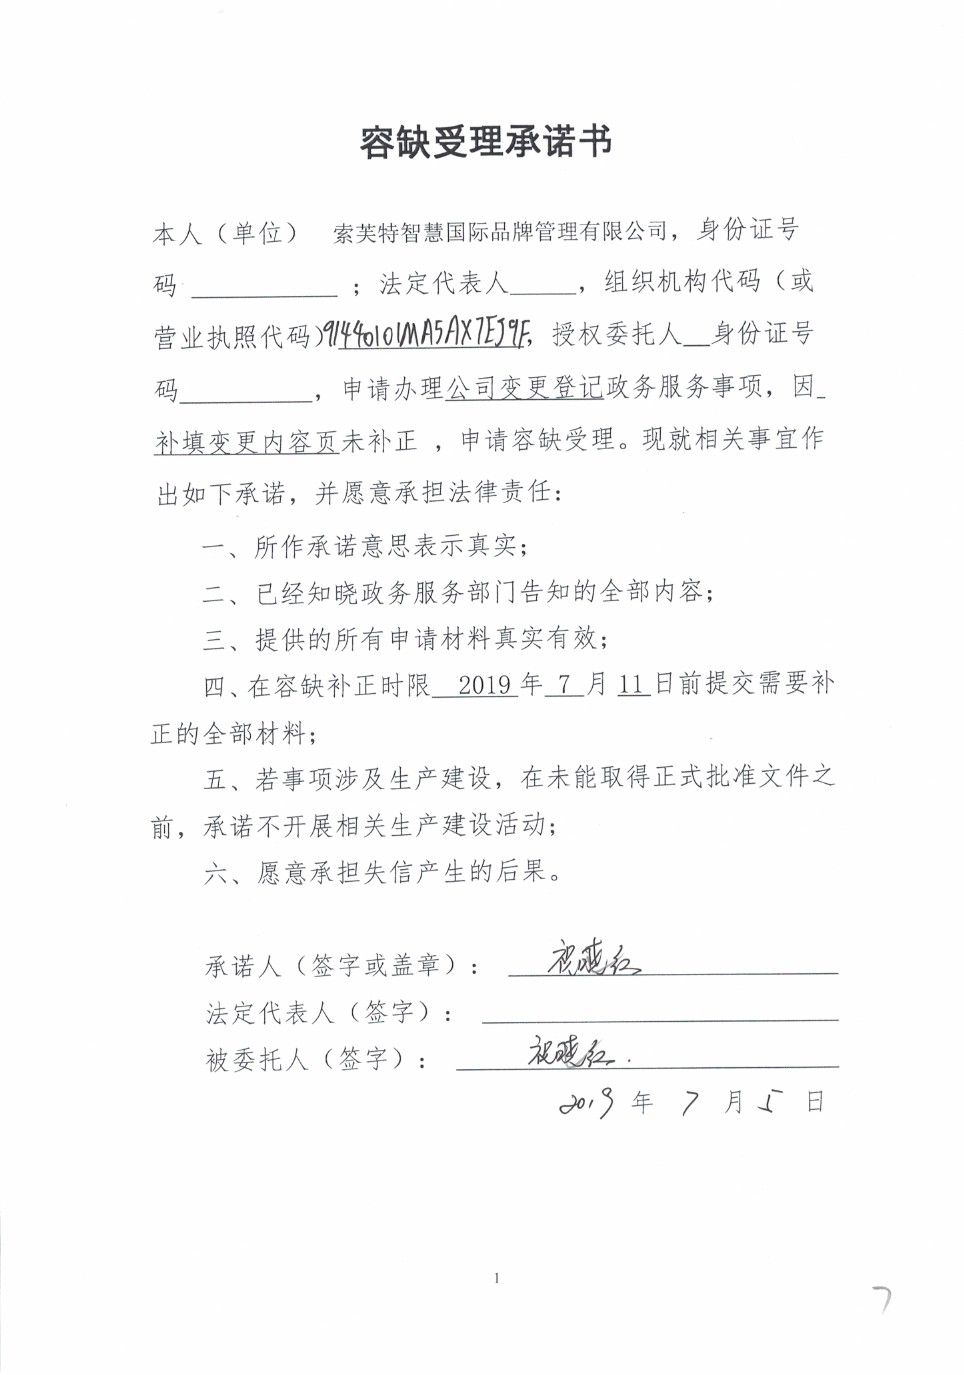 容缺受理承诺书
本人（单位） 索芙特智慧国际品牌管理有限公司，身份证号
码 ___________ ；法定代表人_____，组织机构代码（或
营业执照代码)91440101MA5AX7EJ9F，授权委托人__身份证号
码__________，申请办理公司变更登记政务服务事项，因_
补填变更内容页未补正 ，申请容缺受理。现就相关事宜作
出如下承诺，并愿意承担法律责任：
一、所作承诺意思表示真实；
二、已经知晓政务服务部门告知的全部内容；
三、提供的所有申请材料真实有效；
四、在容缺补正时限 2019 年 7 月 11 日前提交需要补
正的全部材料；
五、若事项涉及生产建设，在未能取得正式批准文件之
前，承诺不开展相关生产建设活动；
六、愿意承担失信产生的后果。
承诺人（签字或盖章）： 祝晓红
法定代表人（签字）：
被委托人（签字）： 祝晓红.
2019 年 7 月 5 日
1
7